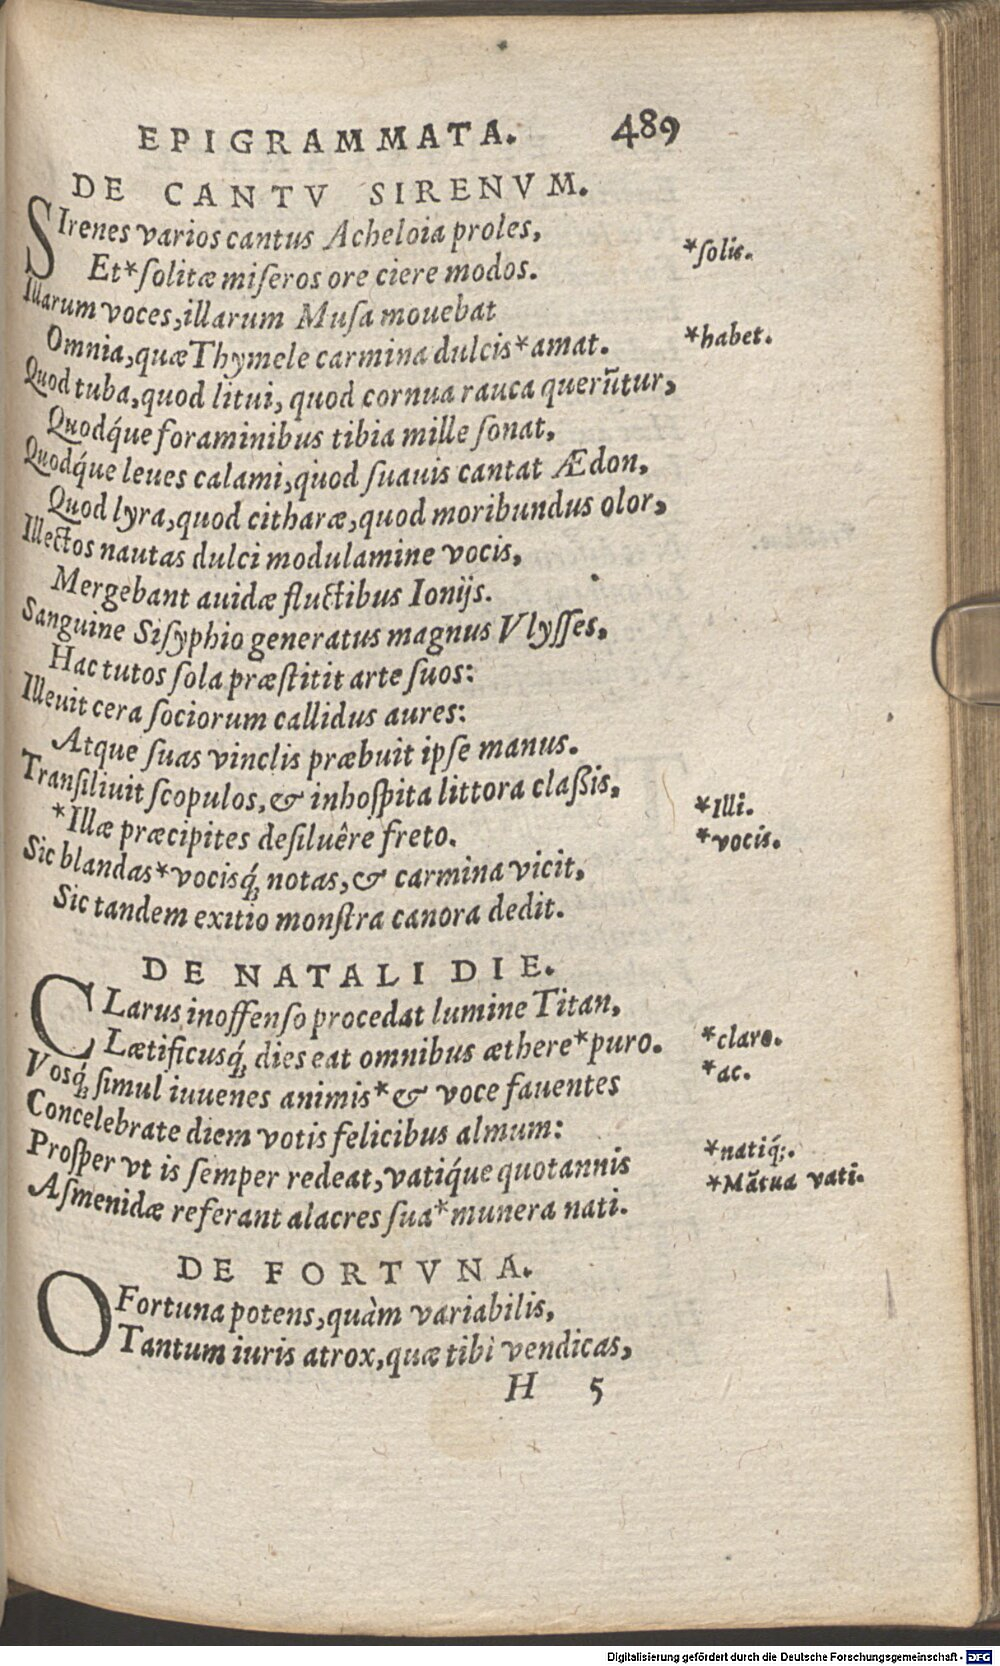 EPIGRAMMATA. 489
DE CANTV SIRENVM.
SIrenes varios cantus Acheloia proles,
Et*ſolitæ miſeros ore ciere modos. *ſolis.
Illarum voces, illarum Muſa mouebat
Omnia, quæ Thymele carmina dulcis*amat. *habet.
Quod tuba, quod litui, quod cornua rauca querũtur,
Quodq́ue foraminibus tibia mille ſonat,
Quodq́ue leues calami, quod ſuauis cantat Ædon,
Quod lyra, quod citharæ, quod moribundus olor,
Illectos nautas dulci modulamine vocis,
Mergebant auidæ fluctibus Ionijs.
Sanguine Siſyphio generatus magnus Vlyſſes,
Hac tutos ſola præſtitit arte ſuos:
Illeuit cera ſociorum callidus aures:
Atque ſuas vinclis præbuit ipſe manus.
Tranſiliuit ſcopulos, & inhoſpita littora claßis,
*Illæ præcipites deſiluêre freto. *Illi.
Sic blandas*vocisq́ꝫ notas, & carmina vicit, *vocis.
Sic tandem exitio monſtra canora dedit.
DE NATALI DIE.
CLarus inoffenſo procedat lumine Titan,
Lætificusq́ꝫ dies eat omnibus æthere*puro. *claro.
Vosq́ꝫ ſimul iuuenes animis*& voce fauentes *ac.
Concelebrate diem votis felicibus almum:
Proſper vt is ſemper redeat, vatiq́ue quotannis *natiq́;.
Aſmenidæ referant alacres ſua*munera nati. *Mãtua vati.
DE FORTVNA.
O Fortuna potens, quàm variabilis,
Tantum iuris atrox, quæ tibi vendicas,
H 5
Digitalisierung gefördert durch die Deutsche Forschungsgemeinschaft - DFG